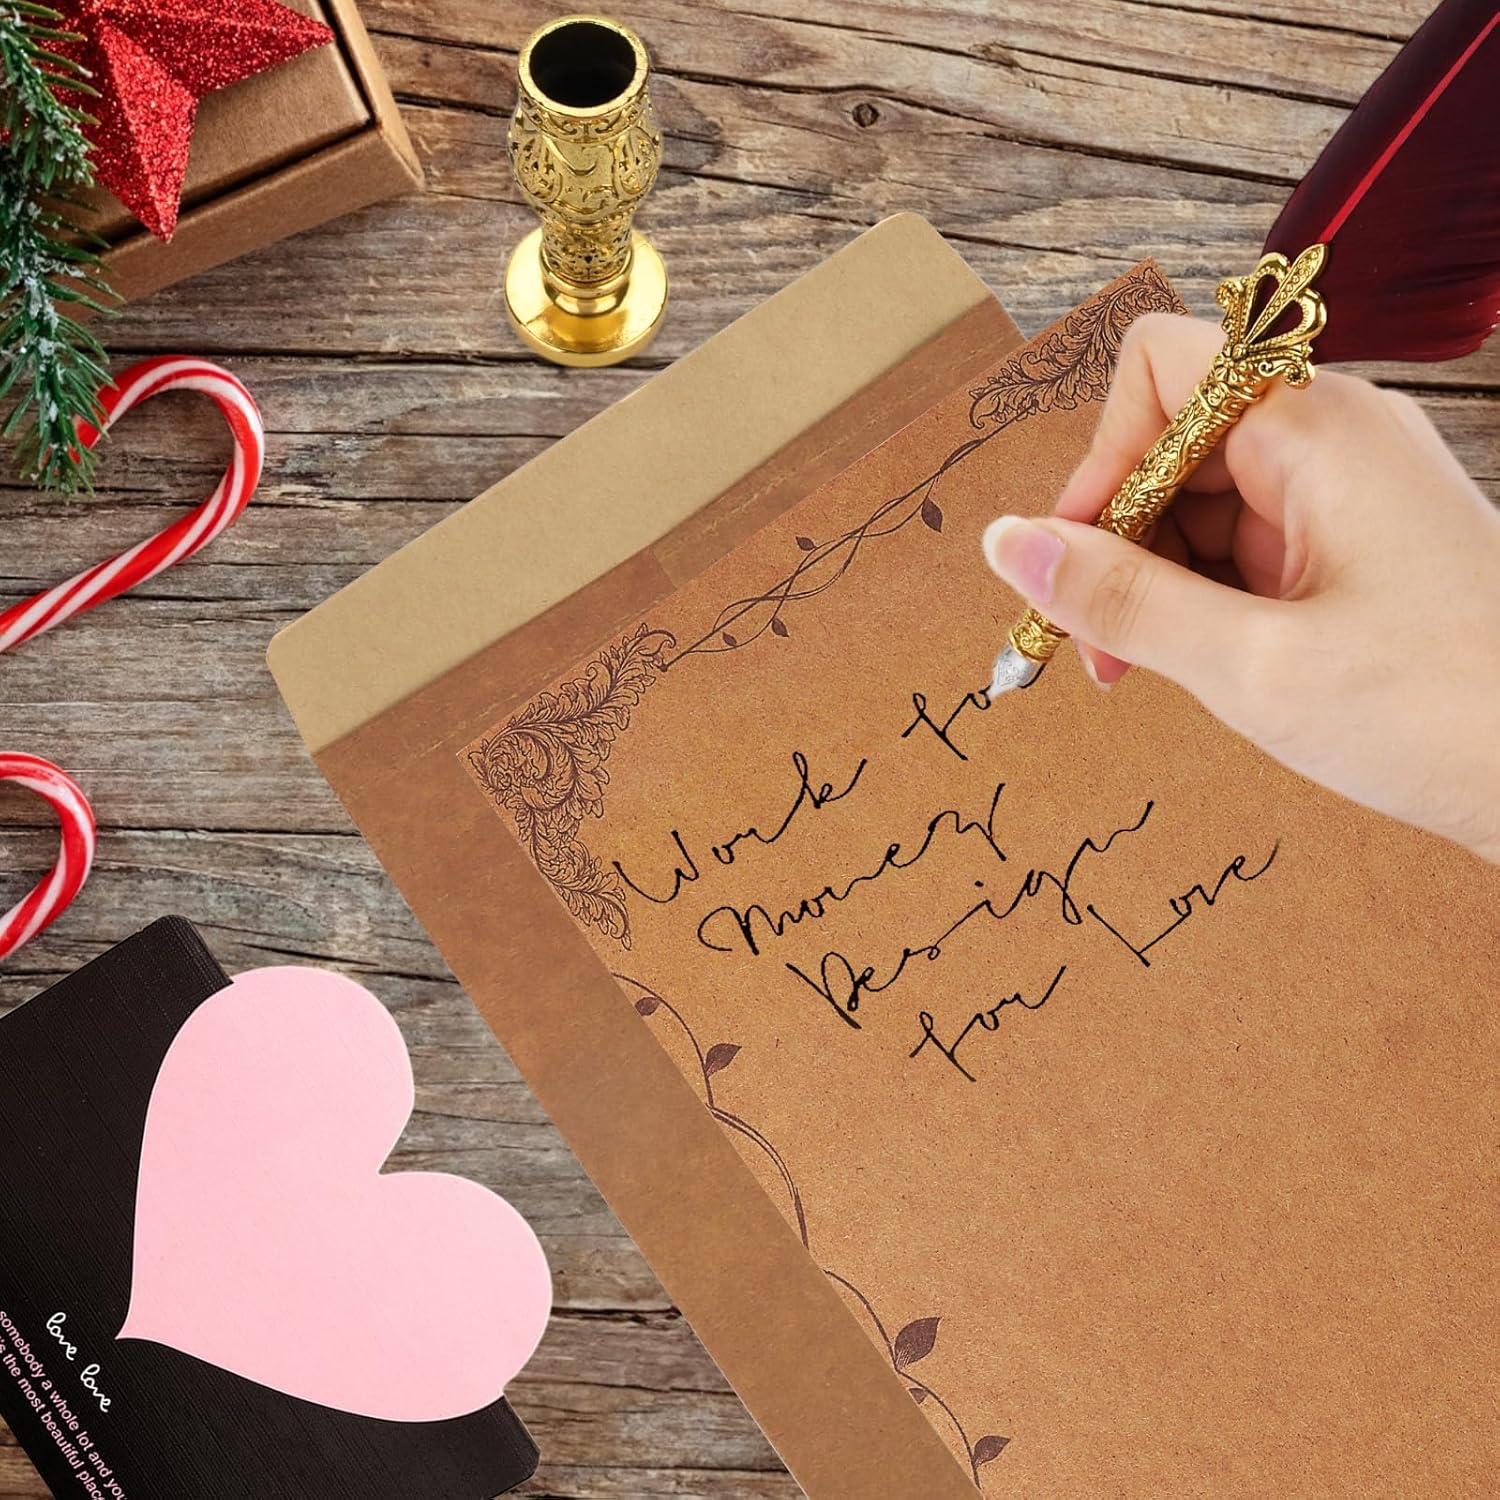 Work for
Money
Design
for Love
love love
somebody a whole lot and you
's the most beautiful place